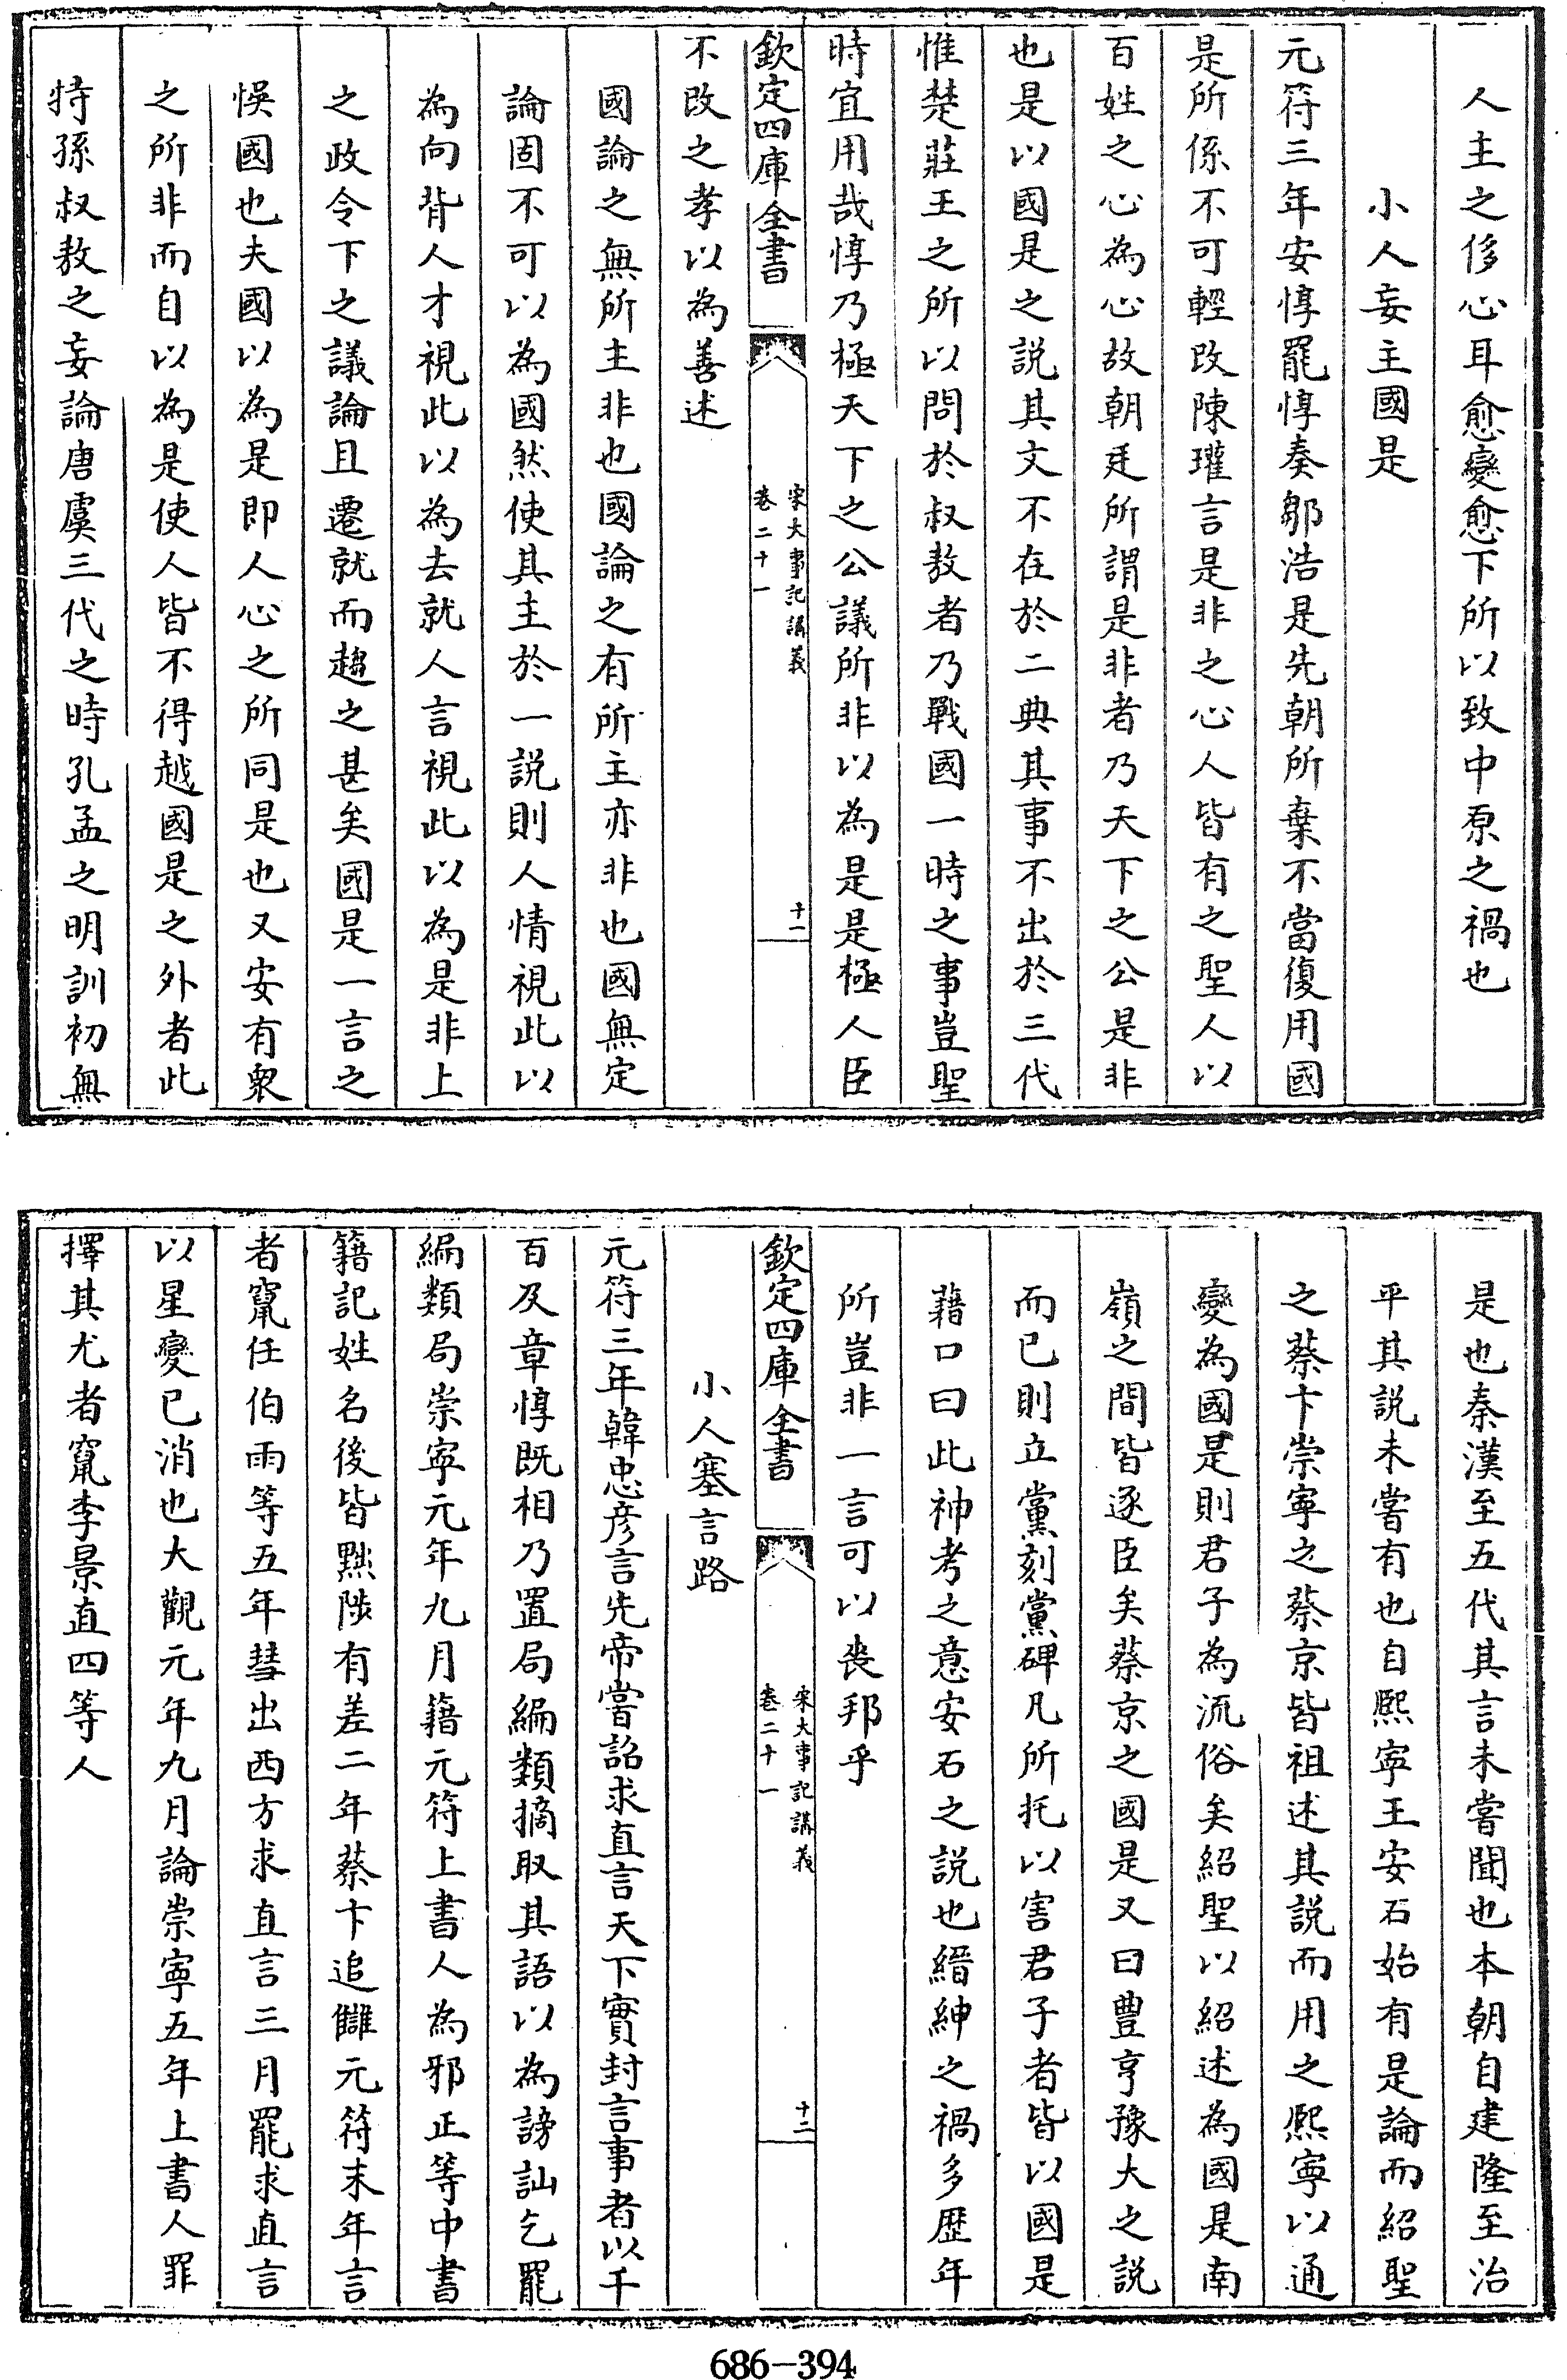 人主之侈心耳愈變愈下所以致中原之禍也
小人妄主國是
元符三年安惇罷惇奏鄒浩是先朝所棄不當復用國
是所係不可輕改陳瓘言是非之心人皆有之聖人以
百姓之心為心故朝廷所謂是非者乃天下之公是非
也是以國是之說其文不在於二典其事不出於三代
惟楚莊王之所以問於叔敖者乃戰國一時之事豈聖
時宜用哉惇乃極天下之公議所非以為是是極人臣
欽定四庫全書
宋大事記講義
卷二十一
十一
不改之孝以為善述
國論之無所主非也國論之有所主亦非也國無定
論固不可以為國然使其主於一說則人情視此以
為向背人才視此以為去就人言視此以為是非上
之政令下之議論且遷就而趨之甚矣國是一言之
悞國也夫國以為是即人心之所同是也又安有衆
之所非而自以為是使人皆不得越國是之外者此
特孫叔敖之妄論唐虞三代之時孔孟之明訓初無
是也秦漢至五代其言未嘗聞也本朝自建隆至治
平其說未嘗有也自熙寧王安石始有是論而紹聖
之蔡卞崇寧之蔡京皆祖述其說而用之熙寧以通
變為國是則君子為流俗矣紹聖以紹述為國是南
嶺之間皆逐臣矣蔡京之國是又曰豊亨豫大之說
而已則立黨刻黨碑凡所托以害君子者皆以國是
藉口曰此神考之意安石之說也縉紳之禍多歴年
所豈非一言可以喪邦乎
欽定四庫全書
宋大事記講義
卷二十一
十二
小人塞言路
元符三年韓忠彦言先帝嘗詔求直言天下實封言事者以千
百及章惇既相乃置局編類摘取其語以為謗訕乞罷
編類局崇寧元年九月籍元符上書人為邪正等中書
籍記姓名後皆黜陟有差二年蔡卞追讎元符末年言
者竄任伯雨等五年彗出西方求直言三月罷求直言
以星變已消也大觀元年九月論崇寧五年上書人罪
擇其尤者竄李景直四等人
686-394